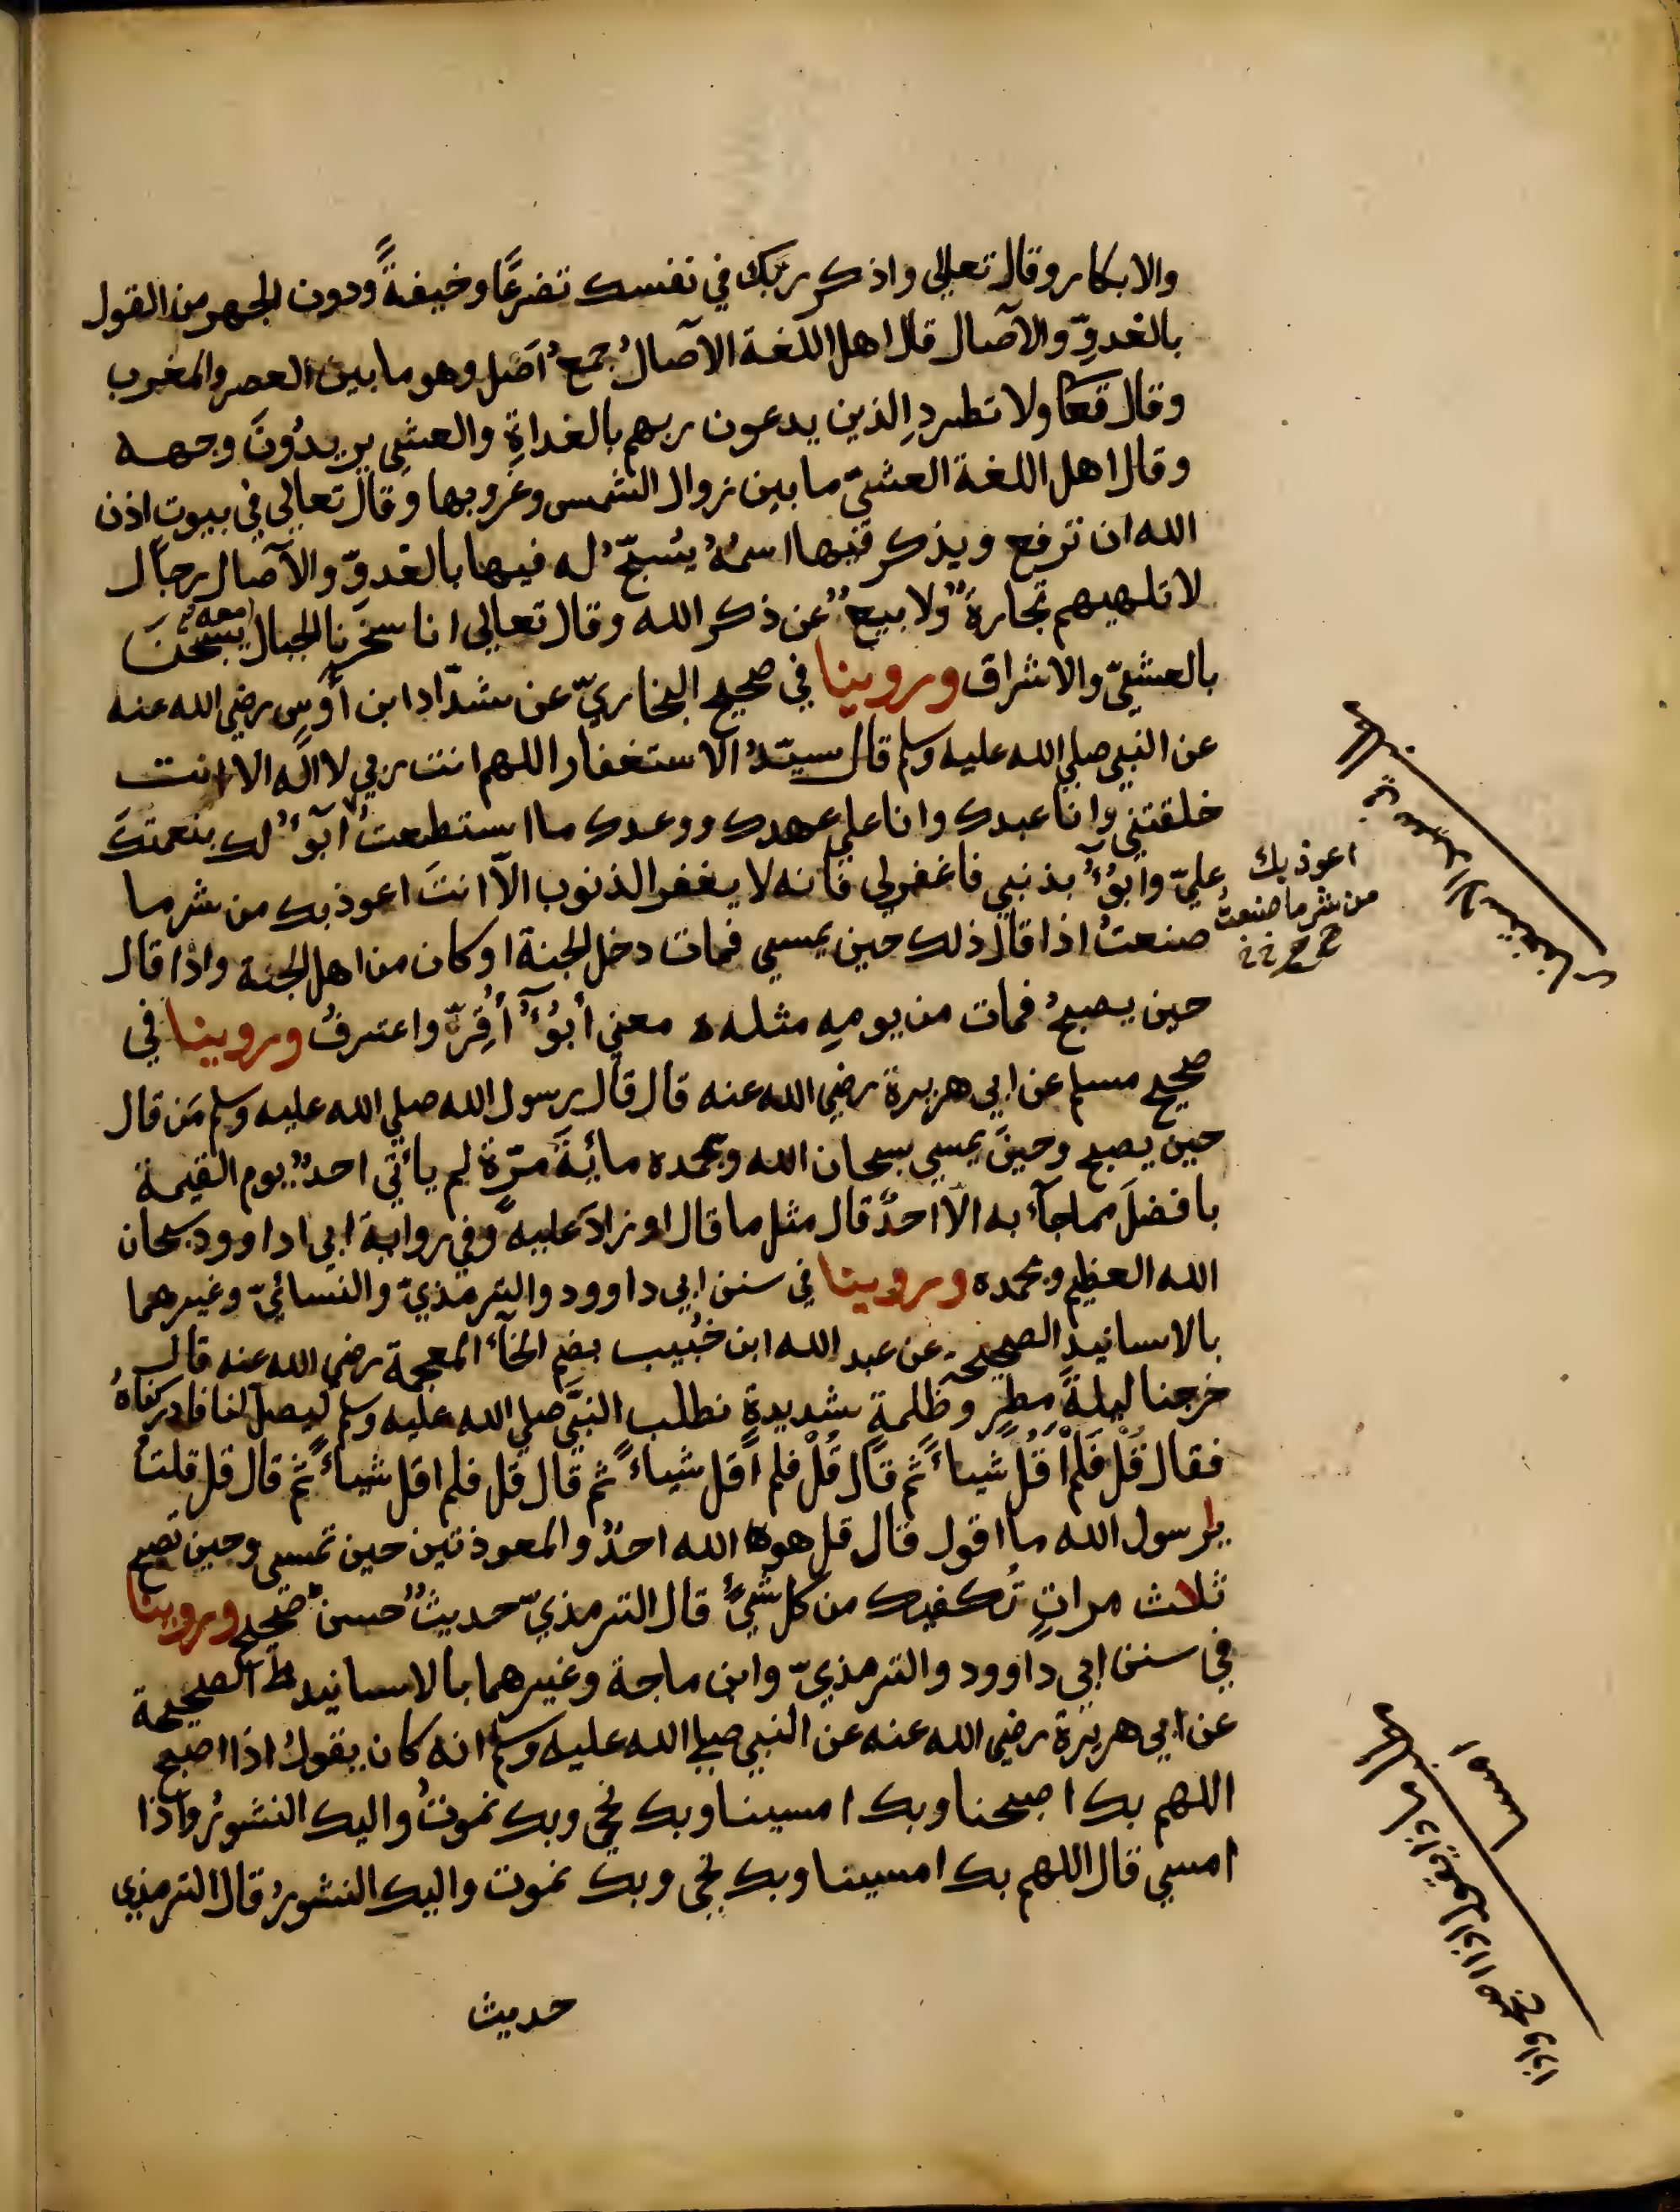 والابكار وقال تعالى واذكر ربك في نفسك تضرعًا وخيفةً ودون الجهر من القول
بالغدوِّ والآصال قال اهل اللغة الآصالُ جمعُ اَصَل وهو ما بين العصر والمغرب
وقال تعا ولا تطردِ الذين يدعون ربهم بالغداةِ والعشي يريدُونَ وجهه
وقال اهل اللغة العشيّ ما بين زوال الشمس وغروبها وقال تعالى في بيوتٍ اذن
الله ان ترفع ويذكر فيها اسمُهُ يُسَبِّحُ له فيها بالغدوِّ والآصال رجال
لا تلهيهم تجارةٌ ولا بيعٌ عن ذكر الله وقال تعالى انا سخرنا الجبال معه يسبحنَ
بالعشيّ والاشراق وروينا في صحيح البخاريّ عن شدّاد ابن أوسٍ رضي الله عنه
عن النبي صلى الله عليه وسلم قال سيّدُ الاستغفار اللهم انت ربي لا اله الا انت
خلقتني وانا عبدك وانا على عهدك ووعدك ما استطعتُ ابوٓءُ لك بنعمتكَ
عليّ وابوٓءُ بذنبي فاغفرلي فانه لا يغفر الذنوب الاّ انتَ اعوذ بك من شر ما
صنعتُ اذا قال ذلك حين يمسي فمات دخل الجنة او كان من اهل الجنة واذا قال
حين يصبحُ فمات من يومِهِ مثله ه معنى أبُوٓءُ أُقِرُّ واعترفُ وروينا في
صحيح مسلم عن ابي هريرة رضي الله عنه قال قال رسول الله صلى الله عليه وسلم مَن قال
حين يصبح وحينَ يمسي سبحان الله وبحمده مائةَ مرّة لم يأتي احدٌ يوم القيمة
بافضلَ مما جآء به الاّ احدٌ قال مثل ما قال او زادَ عليه وفي رواية ابي اداوود سبحان
الله العظيم وبحمده وروينا في سنن ابي داوود والترمذيّ والنسائيّ وغيرهما
بالاسانيد الصحيحة عن عبد الله ابن خُبيب بضم الخآء المعجمة رضي الله عنه قال
خرجنا ليلةَ مطرٍ وظلمةٍ شديدةٍ نطلب النبيَّ صلى الله عليه وسلم ليصلّ لنا فادركناهُ
فقال قُلْ فَلَمْ اَقُلْ شياءً ثم قال قُلْ فلم اَقل شياءً ثم قال قل فلم اقل شياءً ثم قال قل قلتُ
يا رسول الله ما اقول قال قل هو الله احدٌ والمعوذتين حين تمسي وحين تصبح
ثلاث مراتٍ تُكفيك من كل شيءٍ قال الترمذيّ حديثٌ حسنٌ صحيح وروينا
في سنن ابي داوود والترمذيّ وابن ماجة وغيرهما بالاسانيد الصحيحة
عن ابي هريرة رضي الله عنه عن النبي صلى الله عليه وسلم انه كان يقولُ اذا اصبح
اللهم بك اصبحنا وبك امسينا وبك نحي وبك نموتُ واليك النشورُ واذا
امسي قال اللهم بك امسينا وبك نحي وبك نموت واليك النشورُ قال الترمذي
حديث
اعوذ بك
من شر ما صنعتُ